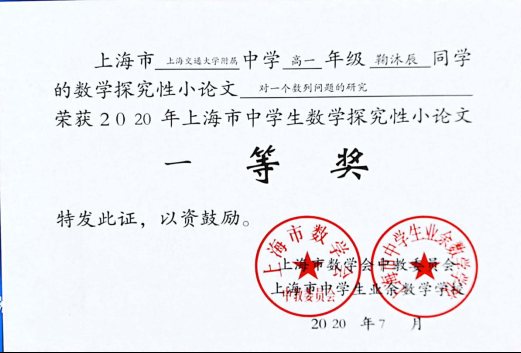 上海市上海交通大学附属中学高一年级鞠沐辰同学
的数学探究性小论文对一个数列问题的研究
荣获2020年上海市中学生数学探究性小论文
一等奖
特发此证，以资鼓励。
上海市数学会
中教委员会
上海市中学生业余数学学校
上海市数学会中教委员会
上海市中学生业余数学学校
2020年7月